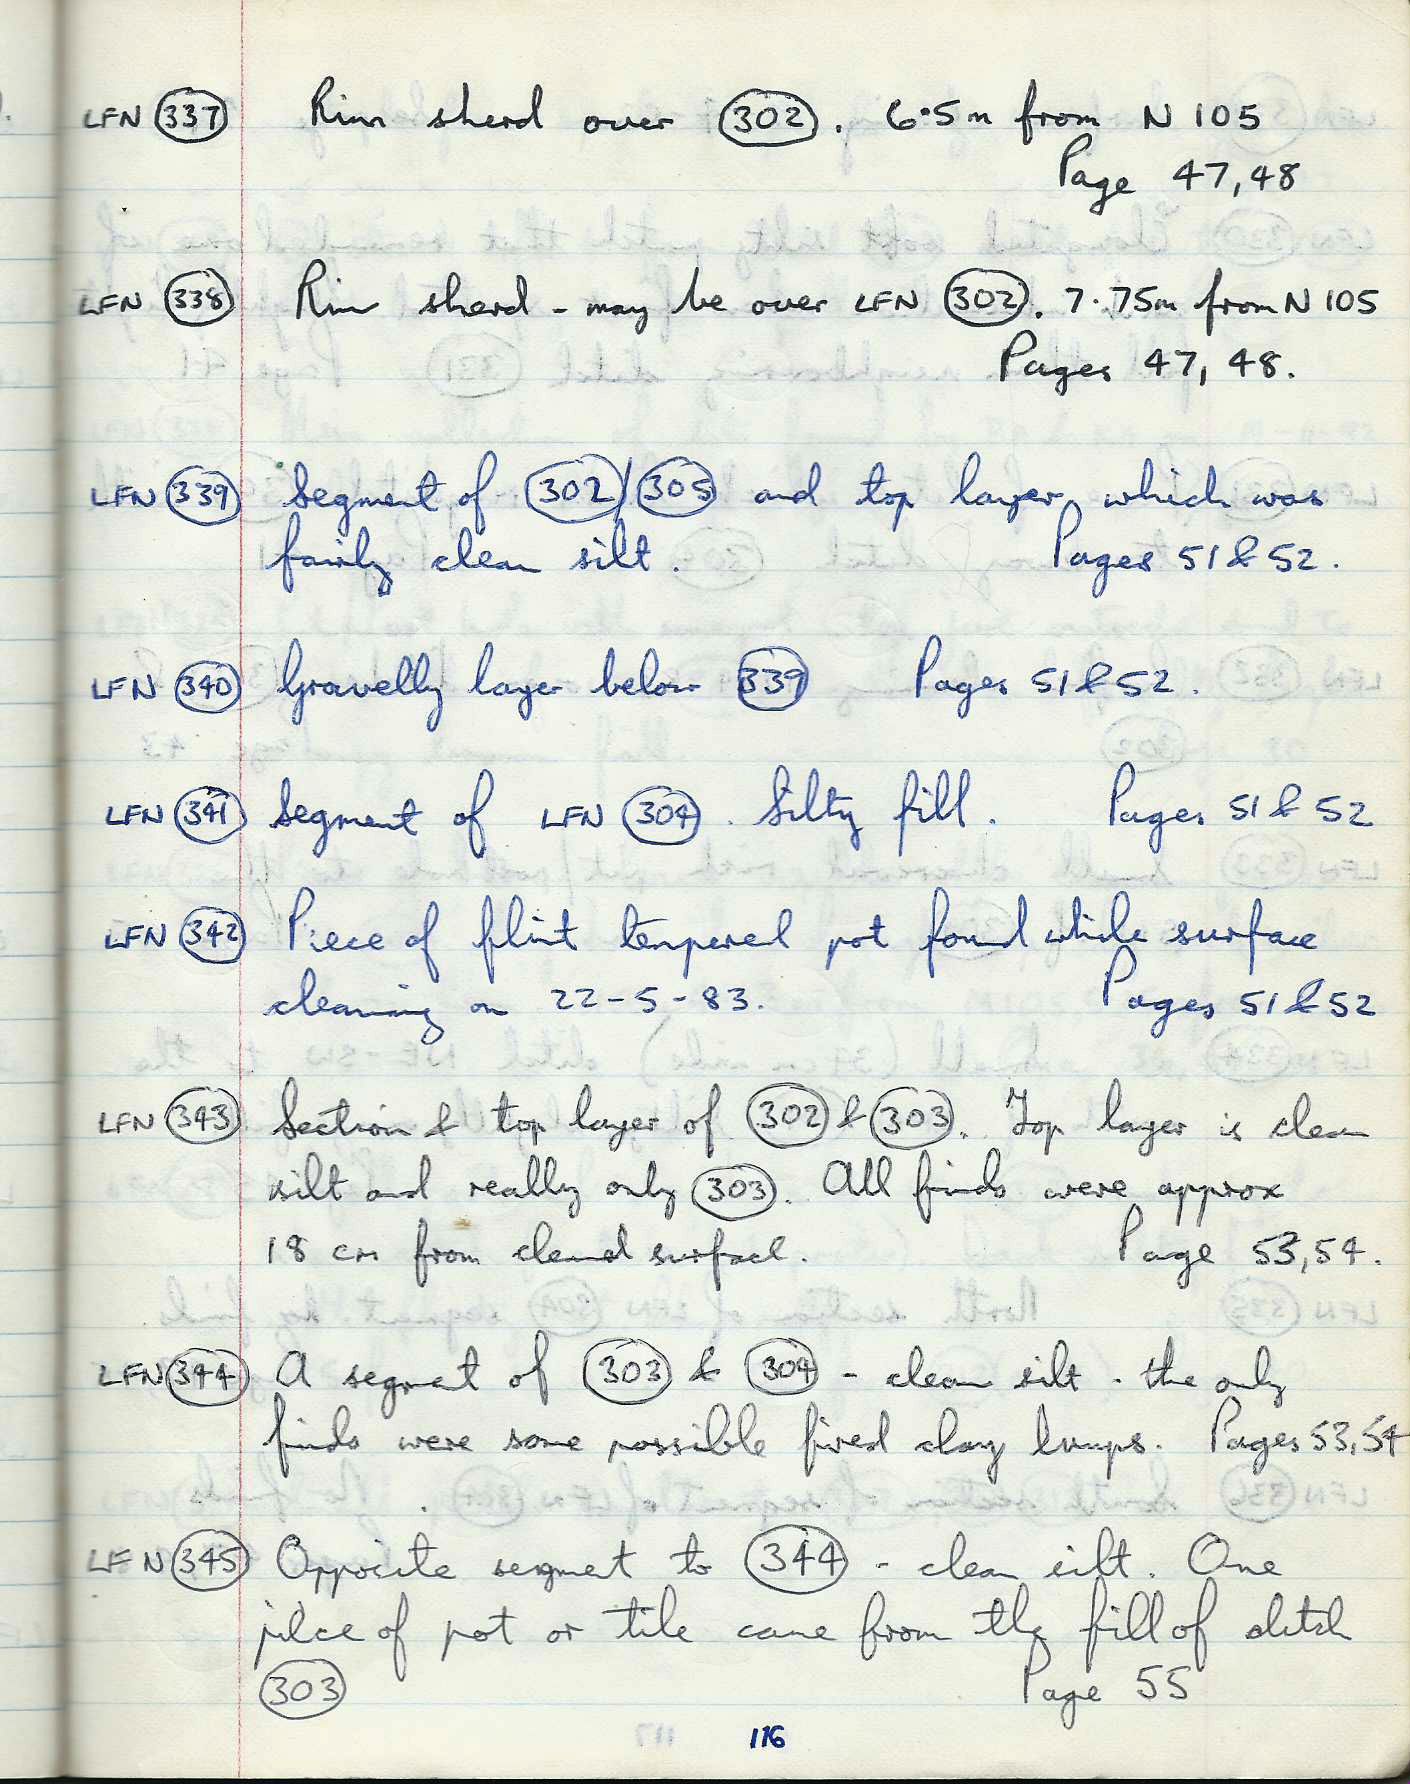 LFN 337 Rim sherd over 302. 6.5m from N 105
Page 47,48
LFN 338 Rim sherd - may be over LFN 302. 7.75m from N 105
Pages 47, 48.
LFN 339 Segment of 302/305 and top layer, which was
fairly clean silt. Pages 51 & 52.
LFN 340 Gravelly layer below 339 Pages 51 & 52.
LFN 341 Segment of LFN 304. Silty fill. Pages 51 & 52
LFN 342 Piece of flint tempered pot found while surface
cleaning on 22-5-83. Pages 51 & 52
LFN 343 Section & top layer of 302 & 303. Top layer is clean
silt and really only 303. All finds were approx
18 cm from cleaned surface. Page 53,54.
LFN 344 A segment of 303 & 304 - clean silt - the only
finds were some possible fired clay lumps. Pages 53,54
LFN 345 Opposite segment to 344 - clean silt. One
piece of pot or tile came from the fill of ditch
303 Page 55
116